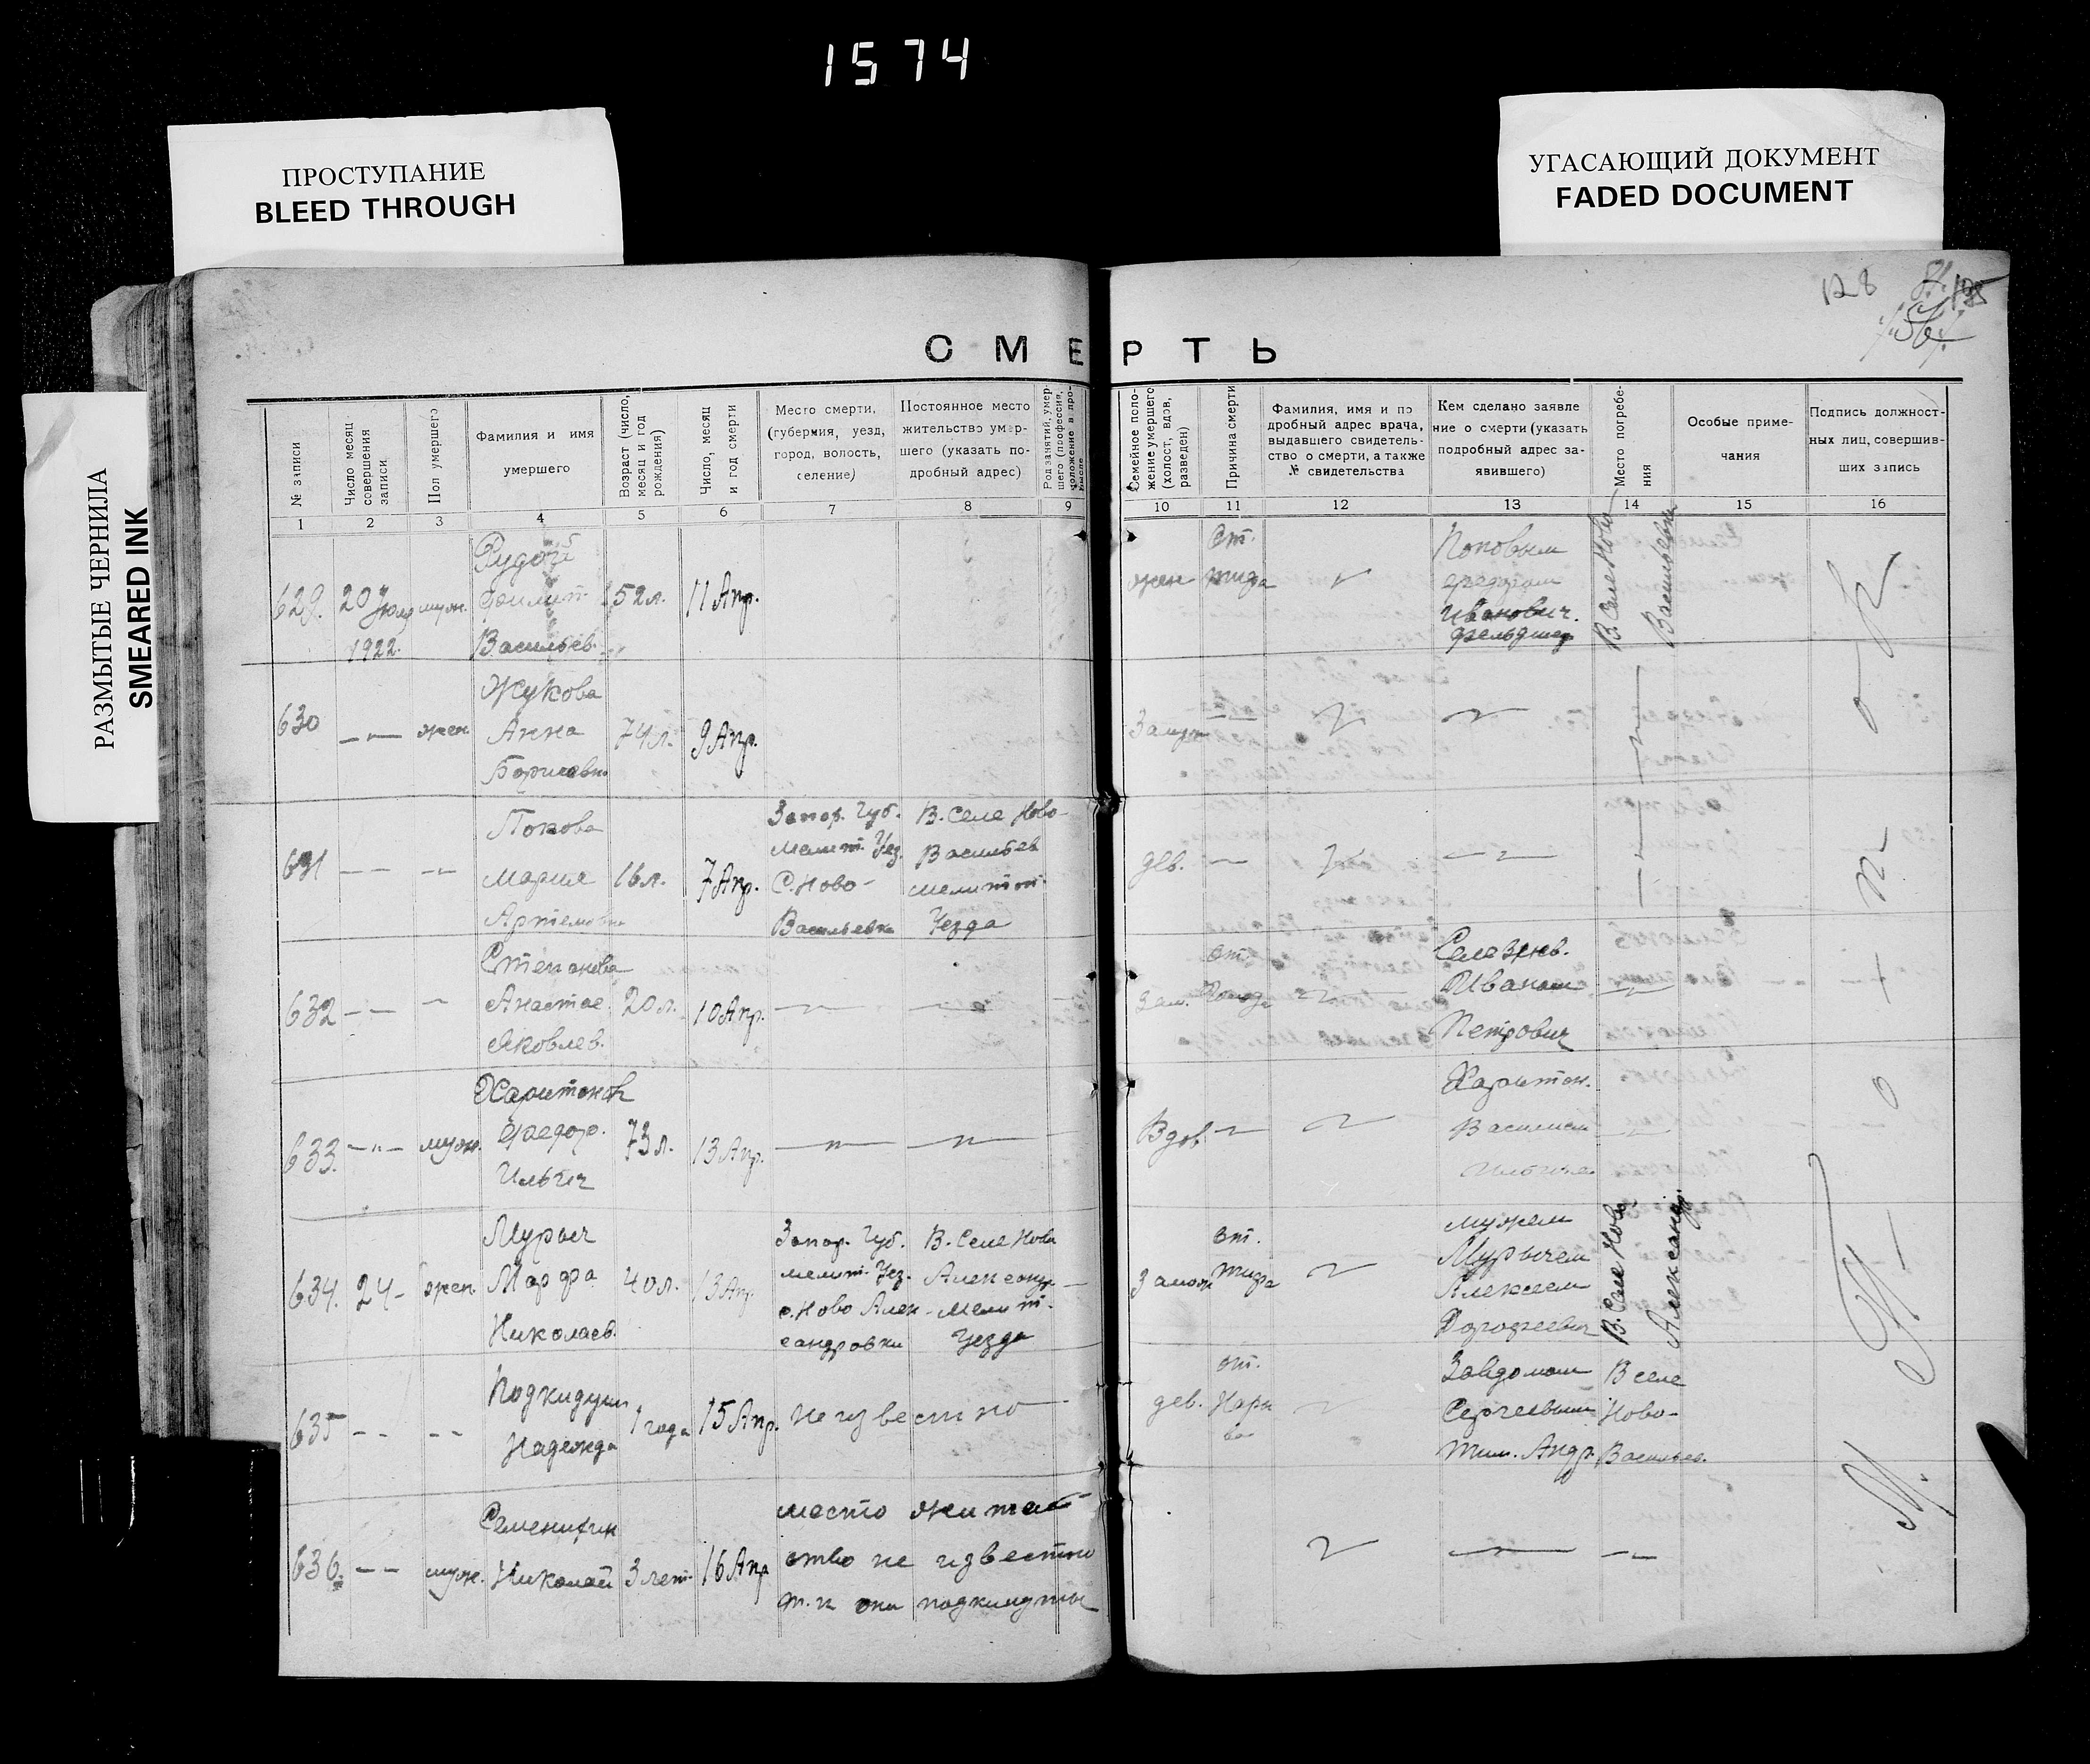 1574
ПРОСТУПАНИЕ
BLEED THROUGH
УГАСАЮЩИЙ ДОКУМЕНТ
FADED DOCUMENT
РАЗМЫТЫЕ ЧЕРНИЛА
SMEARED INK
128
СМЕРТЬ
№ записи
Число месяц
совершения
записи
Пол умершего
Фамилия и имя
умершего
Возраст (число,
месяц и год
рождения)
Число, месяц
и год смерти
Место смерти,
(губерния, уезд,
город, волость,
селение)
Постоянное место
жительство умер-
шего (указать по-
дробный адрес)
Род занятий, умер-
шего (профессия,
положение в про-
мысле
Семейное поло-
жение умершего
(холост, вдов,
разведен)
Причина смерти
Фамилия, имя и по
дробный адрес врача,
выдавшего свидетель-
ство о смерти, а также
№ свидетельства
Кем сделано заявле
ние о смерти (указать
подробный адрес за-
явившего)
Место погребе-
ния
Особые приме-
чания
Подпись должност-
ных лиц, совершив-
ших запись
1 2 3 4 5 6 7 8 9 10 11 12 13 14 15 16
629. 20 Июля 1922. муж.
Филип.
Васильев.
52 л. 11 Апр.
жен
от.
тифа
Поповым
Федором
Иванович.
фельдшер
В. Селе Ново
Васильевки
630 —"— жен
Жукова
Анна
Борисавн.
74 л. 9 Апр.
Замуж
631 — —
Попова
Мария
Артемовна
16 л. 7 Апр.
Запор. Губ.
мелит. Уез.
С. Ново-
Васильевка
В. Селе Ново-
Васильев
мелитоп.
Уезда
дев.
632 — —
Степанова
Анастас.
Яковлев.
20 л. 10 Апр.
Зам.
от.
Голода
Селезнев.
Иваном
Петрович
633. —"— муж.
Харитонов
Федор.
Ильич
73 л. 13 Апр. —"— —"—
Вдов.
Харитон.
Василием
634. 24- жен.
Мурыч
Марфа
Николаев.
40 л. 13 Апр.
Запор. Губ.
мелит. Уез.
с. Ново Алек-
сандровки
В. Селе Нова
Александр
Мелит.
Уезда
Замож
от.
тифа
мужем
Мурычем
Алексеем
Дорофеевич
В. Селе Ново
Александр.
635 - - - -
Подкидуш
Надежда
1 года 15 Апр.
Не известно
дев.
от.
Завдомом
Сергеевым
Тим. Андр.
В селе
Ново-
Васильев.
636. — — муж.
Николай
3 лет. 16 Апр
место житель
ство не известно
т. к они подкидты